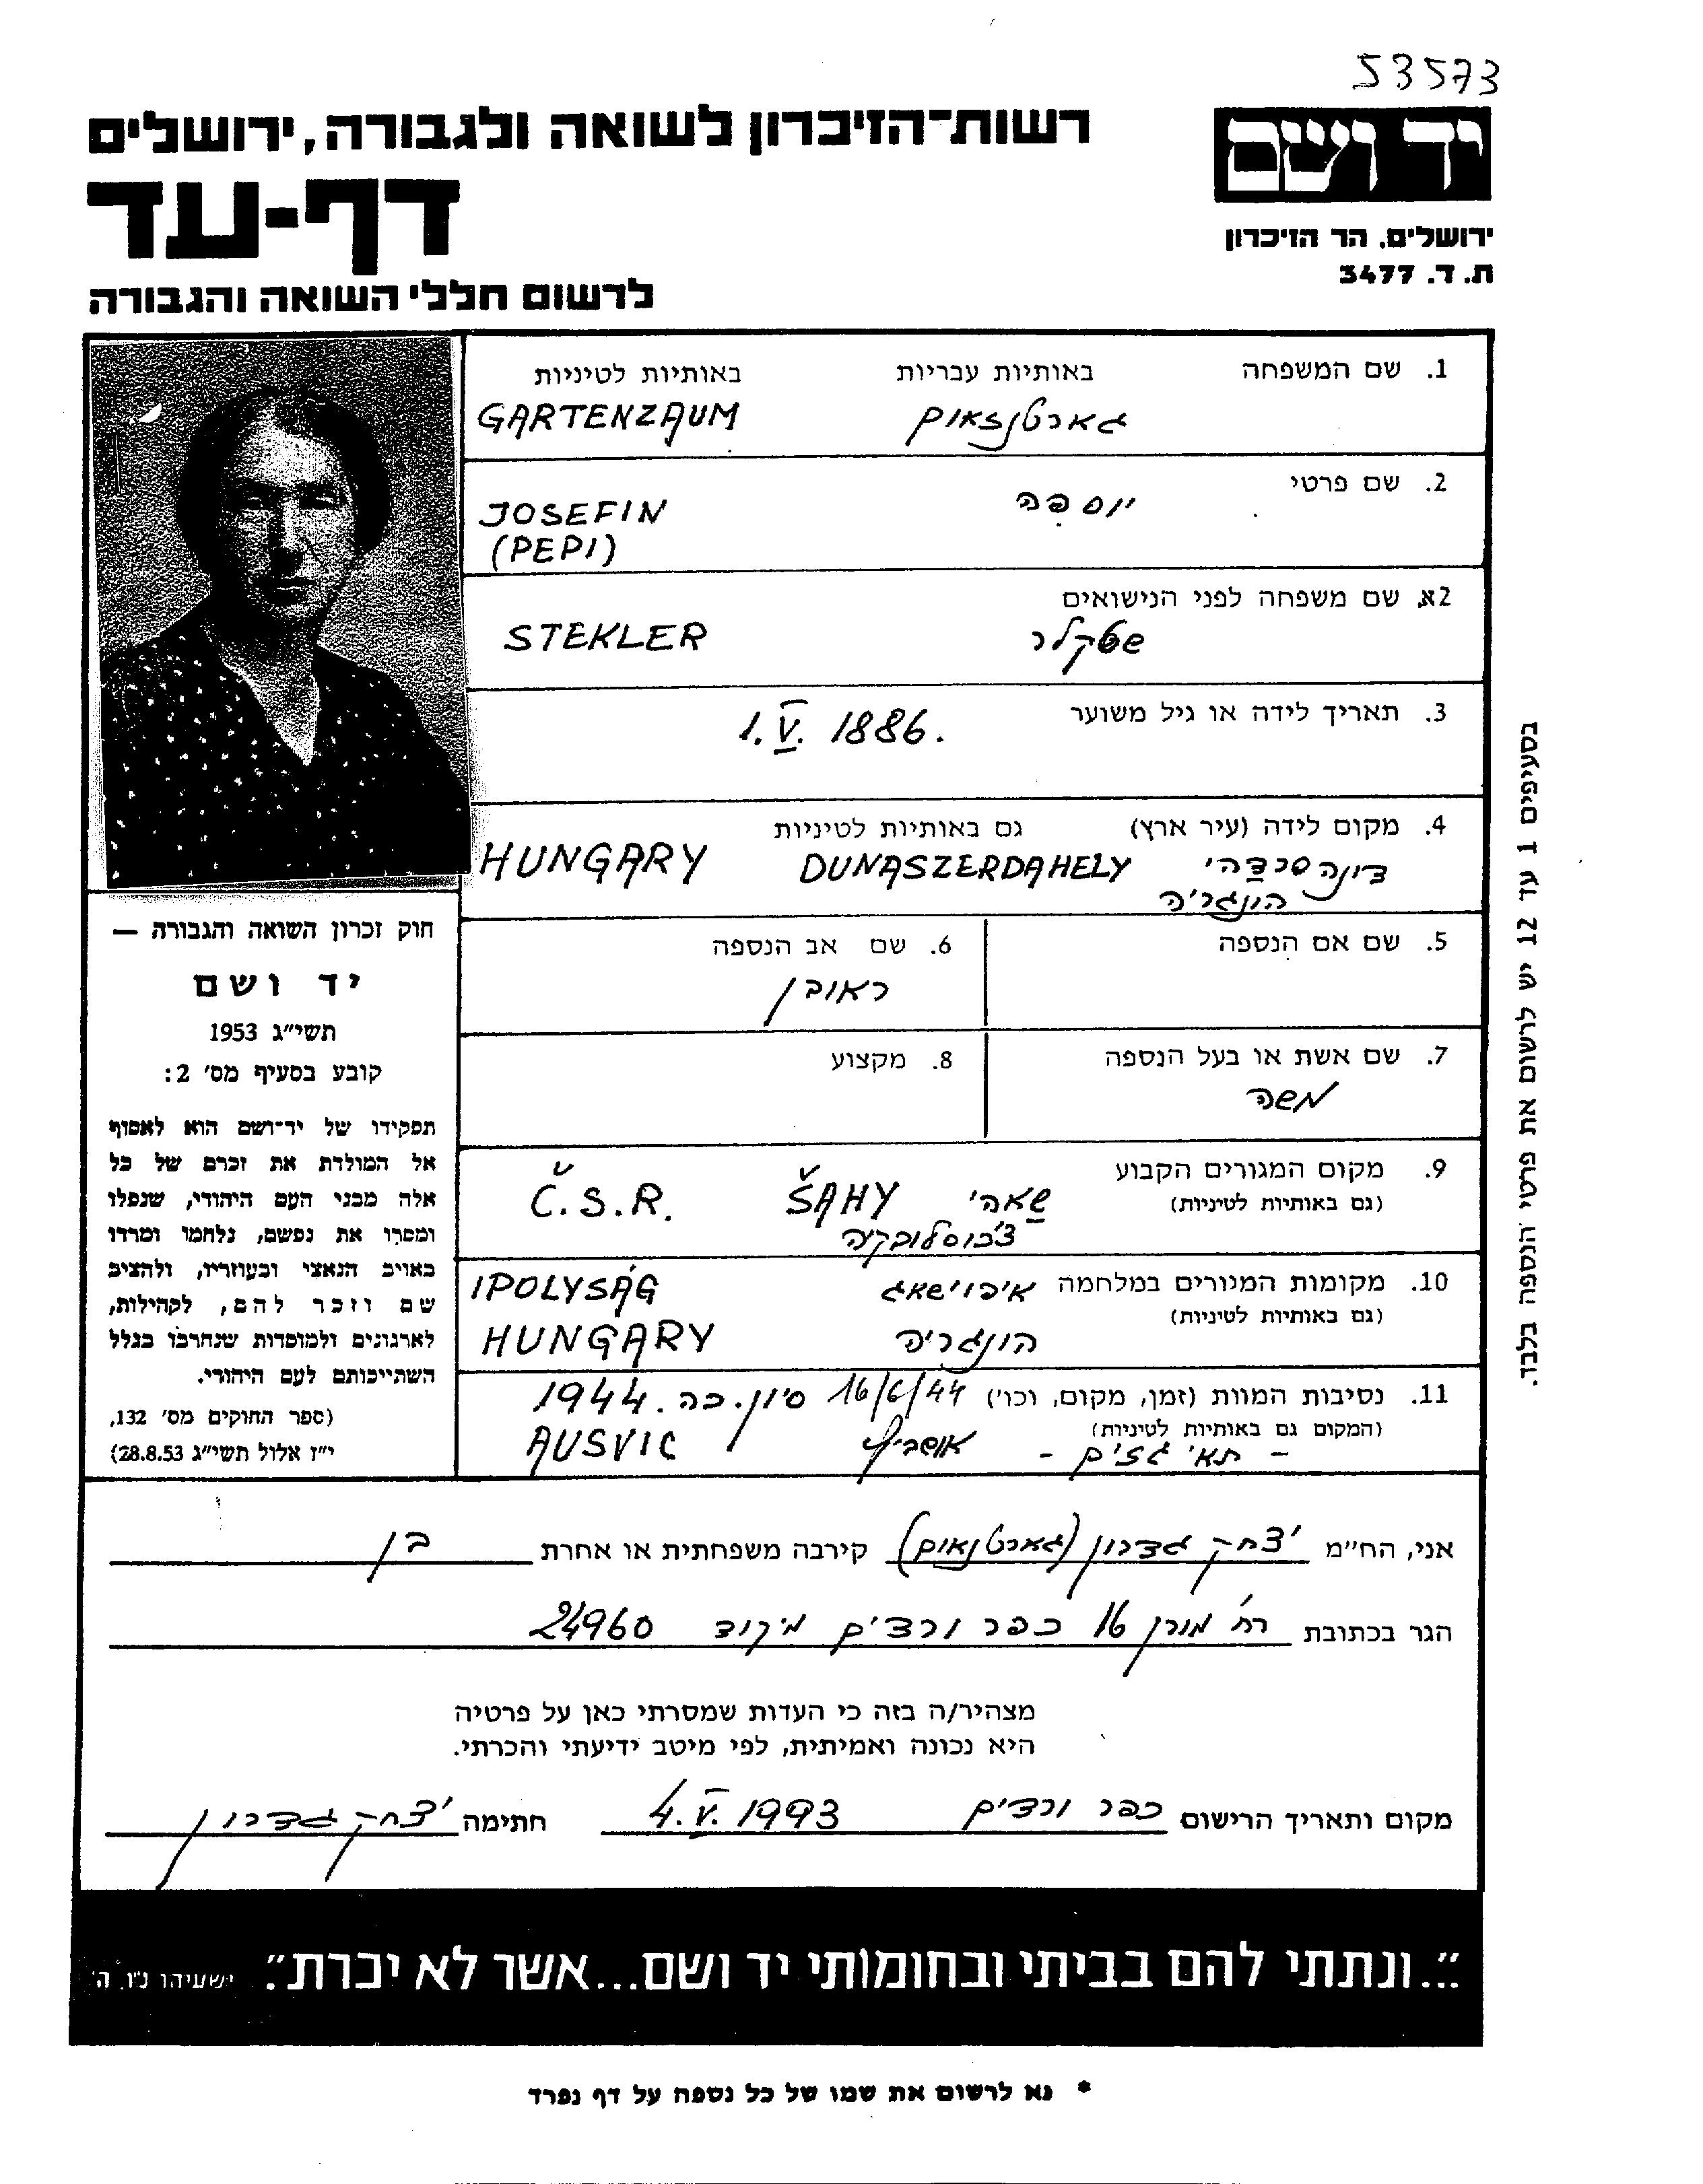 53573
יד ושם
רשות־הזיכרון לשואה ולגבורה, ירושלים
דף-עד
ירושלים, הר הזיכרון
ת. ד. 3477
לרשום חללי השואה והגבורה
1. שם המשפחה באותיות עבריות באותיות לטיניות
גארטנזאום GARTENZAUM
2. שם פרטי
יוספה JOSEFIN
(PEPI)
2א. שם משפחה לפני הנישואים
שטקלר STEKLER
3. תאריך לידה או גיל משוער
1. V. 1886.
4. מקום לידה (עיר ארץ) גם באותיות לטיניות
דונהסרדהי DUNASZERDAHELY HUNGARY
הונגריה
5. שם אם הנספה 6. שם אב הנספה
ראובן
7. שם אשת או בעל הנספה 8. מקצוע
משה
9. מקום המגורים הקבוע
(גם באותיות לטיניות)
שאהי ŠAHY Č.S.R.
צ'כוסלובקיה
10. מקומות המגורים במלחמה
(גם באותיות לטיניות)
איפוישאג IPOLYSÁG
הונגריה HUNGARY
11. נסיבות המוות (זמן, מקום, וכו') 16/6/44 סיון. כה. 1944
(המקום גם באותיות לטיניות)
- תאי גזים - אושביץ AUSVIC
חוק זכרון השואה והגבורה —
יד ושם
תשי"ג 1953
קובע בסעיף מס' 2:
תפקידו של יד־ושם הוא לאסוף
אל המולדת את זכרם של כל
אלה מבני העם היהודי, שנפלו
ומסרו את נפשם, נלחמו ומרדו
באויב הנאצי ובעוזריו, ולהציב
שם וזכר להם, לקהילות,
לארגונים ולמוסדות שנחרבו בגלל
השתייכותם לעם היהודי.
(ספר החוקים מס' 132,
י"ז אלול תשי"ג 28.8.53)
בסעיפים 1 עד 12 יש לרשום את פרטי הנספה בלבד.
אני, הח"מ יצחק גדרון (גארטנאום) קירבה משפחתית או אחרת בן
הגר בכתובת רח' מורן 16 כפר ורדים מיקוד 24960
מצהיר/ה בזה כי העדות שמסרתי כאן על פרטיה
היא נכונה ואמיתית, לפי מיטב ידיעתי והכרתי.
מקום ותאריך הרישום כפר ורדים 4. V. 1993 חתימה יצחק גדרון
"...ונתתי להם בביתי ובחומותי יד ושם...אשר לא יכרת". ישעיהו נ"ו, ה'
* נא לרשום את שמו של כל נספה על דף נפרד